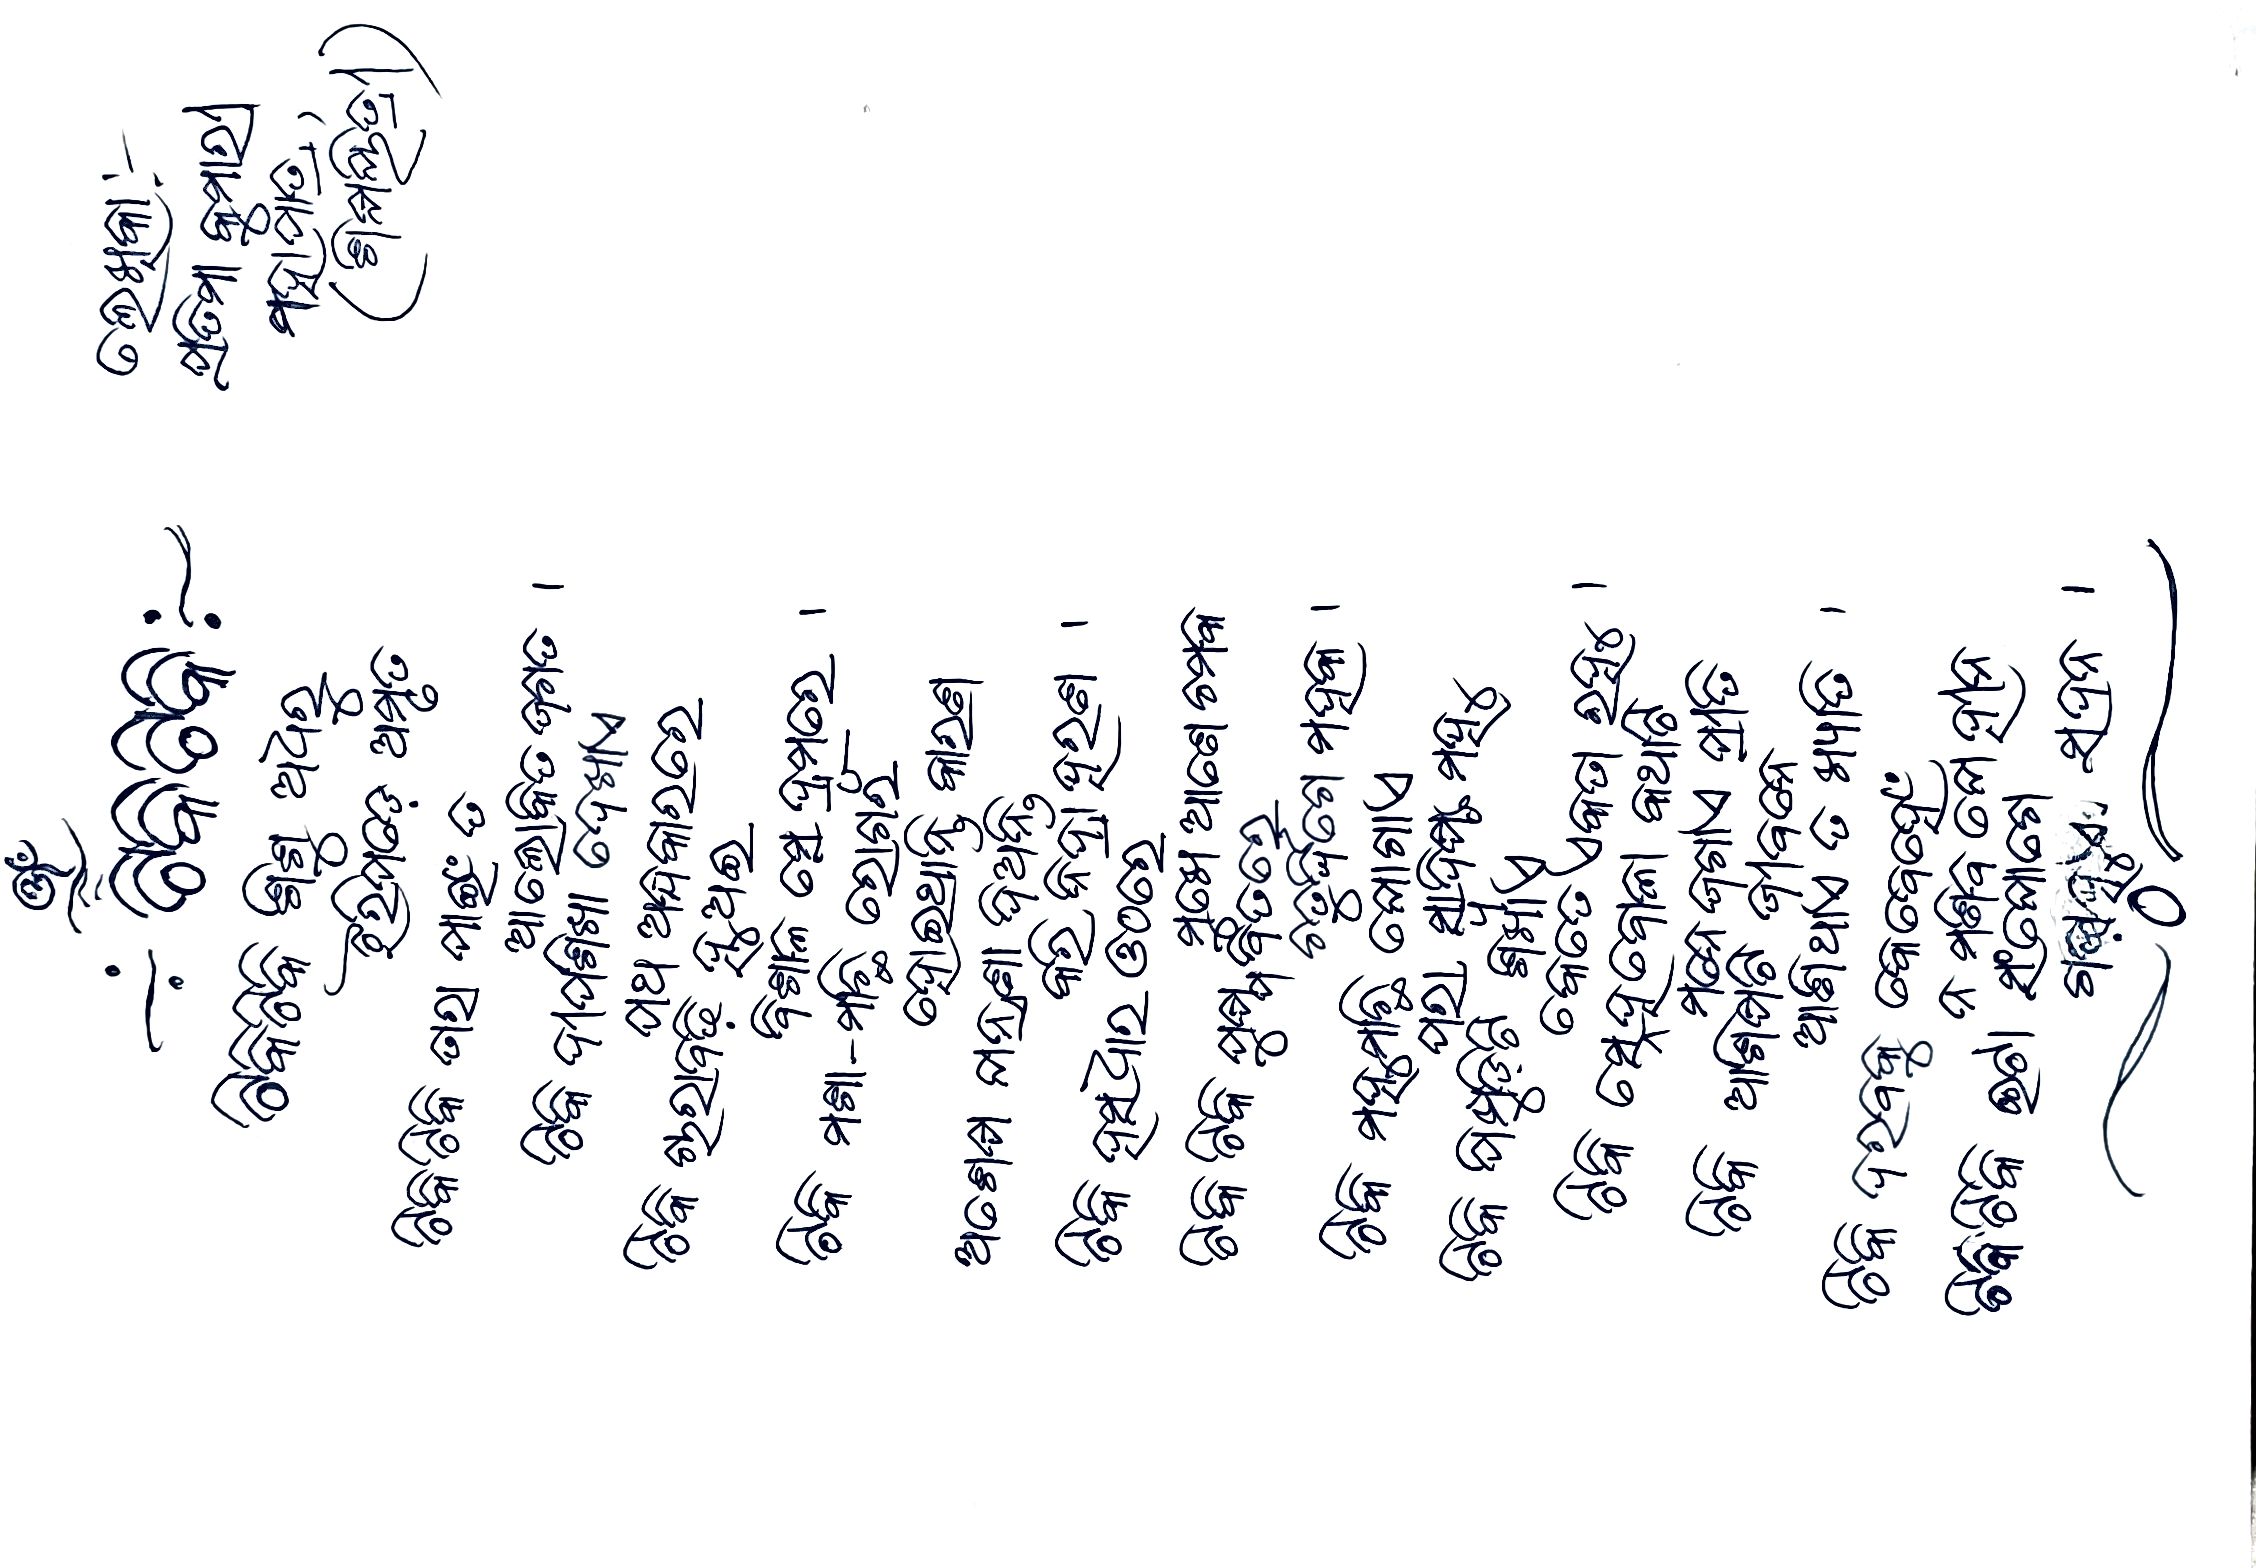 ଓଁ
-: ଟିକିଟିକି :-
ଲେଖିକା :-
ପ୍ରତିମା କୁମାରୀ
ମହାପାତ୍ର,
(ଶିଳ୍ପୟିତ୍ରୀ)
ଟିକିଟିକି ଶିଶୁ ଅଧରୁ
ଝରିପଡ଼େ ଅମୃତ
ଟିକିଟିକି ତାରା ପାଇଁ ତ
ଆଲୋକିତ ଜଗତ ।
ଟିକି ଦୀପଶିଖା ଦେଖାଏ
ପଥ ଅନ୍ଧକାରରେ
ଟିକି ଚାରାବଢ଼ି ହୁଅଇ
ବିଶାଳ ସେ ଦ୍ରୁମରେ ।
ଟିକି ମଶା-ମାଛି ରୋଗର
ହୋଇଥାନ୍ତି କାରଣ
ଅଶେଷ ଯନ୍ତ୍ରଣା ଦିଅନ୍ତି
କରି ନିଦ୍ରା ହରଣ ।
ଟିକି ହସଧାର ଓଠରେ
ମୁଖେ ଆଣେ ଚମକ
ଟିକି ଟିକି ପୁଷ୍ପ ବିତରେ
ଚତୁର୍ଦ୍ଦିଗେ ମହକ ।
ଟିକି ମହୁମାଛି ଯୋଗାଏ
ପରା ସ୍ୱାଦିଷ୍ଟ ମହୁ
ଟିକି ପିମ୍ପୁଡ଼ିଟି ଶିଖାଏ
କେତେ ଏକତା ରହୁ ।
ଟିକି ସ୍ନେହବୋଳା କଥାଟି
ମନେ ଜଗାଏ ପ୍ରୀତି
ଟିକି ଆଶିଷଟି ଜୀବନେ
ଆଣିଥାଏ ତ ଖ୍ୟାତି ।
ଟିକି ଦରବକୁ କେବେହେଁ
ନ ମଣିବ ଯେ ହୀନ
ଟିକିଟିକି ଇଟା ସଂଯୋଗେ
ଗଢ଼ାହୁଏ ସଦନ ।
୦